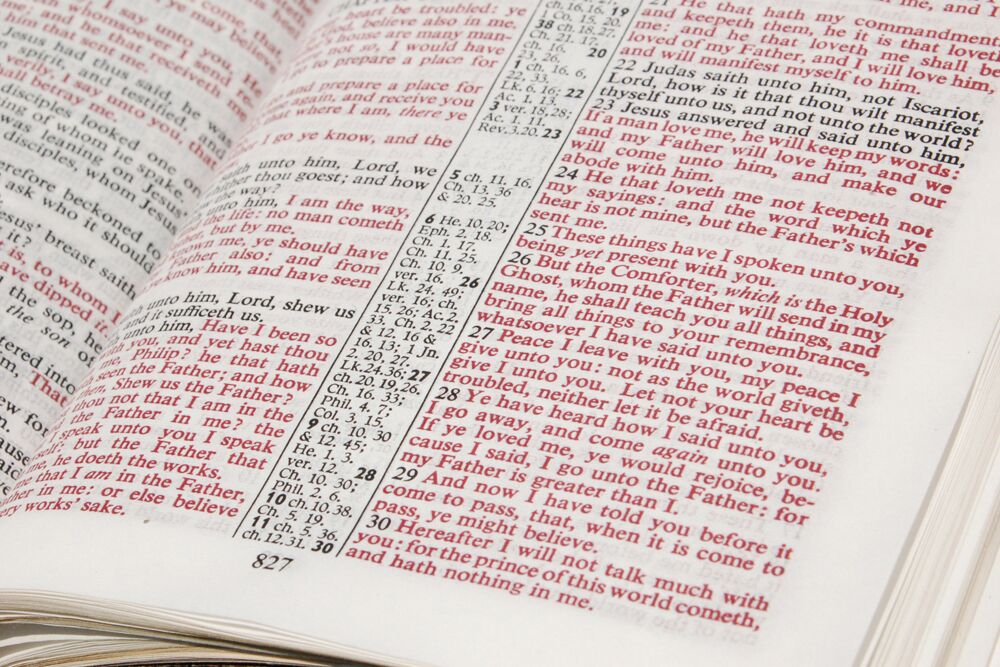 come
I say unto you,
whomsoever I
that receiveth me
that sent me.
Jesus had thus said, he was
in spirit, and testified, and
verily, I say unto you, that
shall betray me.
disciples looked one on
of whom he spake.
was leaning on Jesus'
disciples, whom Jesus
beckoned to
ask who it should
Jesus' breast saith
it?
is, to whom I
have dipped it.
the sop, he
the son of
entered into
him, That
be troubled: ye
believe also in me.
house are many man-
not so, I would have
to prepare a place for
and prepare a place for
come again, and receive you
that where I am, there ye
I go ye know, and the
saith unto him, Lord, we
whither thou goest; and how
the way?
unto him, I am the way,
the life: no man cometh
Father, but by me.
known me, ye should have
Father also: and from
know him, and have seen
unto him, Lord, shew us
and it sufficeth us.
unto him, Have I been so
with you, and yet hast thou
me, Philip? he that hath
seen the Father; and how
then, Shew us the Father?
thou not that I am in the
the Father in me? the
I speak unto you I speak
but the Father that
me, he doeth the works.
me that I am in the Father,
Father in me: or else believe
very works' sake.
ch. 16. 16.
19
Co. 15. 20.
38 ch. 18. 27.
Ch. 21. 17.
20
ch. 16.
23, 26.
1 ch. 16. 6,
22, 33.
Lk. 6. 16; 22
Ac. 1. 13.
3 ver. 18, 28;
Ac. 1. 11.
Rev. 3. 20. 23
5 ch. 11. 16.
Ch. 13. 36
& 20. 25.
6 He. 10. 20;
Eph. 2. 18.
Ch. 1. 17.
Ch. 11. 25.
Ch. 10. 9.
ver. 16. 26
Lk. 24. 49;
ver. 16; ch.
15. 26; Ac. 2.
33. Ch. 2. 22
& 12. 16 &
16. 13; 1 Jn.
2. 20, 27.
Lk. 24. 36; 27
Ch. 20. 19, 26.
Ch. 16. 33;
Phil. 4. 7;
Col. 3. 15.
9 ch. 10. 30
& 12. 45;
He. 1. 3.
ver. 12. 28
Ch. 10. 30;
Phil. 2. 6.
10 ch. 10. 38.
Ch. 5. 19.
11 ch. 5. 36.
ch. 12. 31. 30
21 He that hath my commandments,
and keepeth them, he it is that loveth
me: and he that loveth me shall be
loved of my Father, and I will love him,
and will manifest myself to him.
22 Judas saith unto him, not Iscariot,
Lord, how is it that thou wilt manifest
thyself unto us, and not unto the world?
23 Jesus answered and said unto him,
If a man love me, he will keep my words:
and my Father will love him, and we
will come unto him, and make our
abode with him.
24 He that loveth me not keepeth not
my sayings: and the word which ye
hear is not mine, but the Father's which
sent me.
25 These things have I spoken unto you,
being yet present with you.
26 But the Comforter, which is the Holy
Ghost, whom the Father will send in my
name, he shall teach you all things, and
bring all things to your remembrance,
whatsoever I have said unto you.
27 Peace I leave with you, my peace I
give unto you: not as the world giveth,
give I unto you. Let not your heart be
troubled, neither let it be afraid.
28 Ye have heard how I said unto you,
I go away, and come again unto you.
If ye loved me, ye would rejoice, be-
cause I said, I go unto the Father: for
my Father is greater than I.
29 And now I have told you before it
come to pass, that, when it is come to
pass, ye might believe.
30 Hereafter I will not talk much with
you: for the prince of this world cometh,
and hath nothing in me.
827